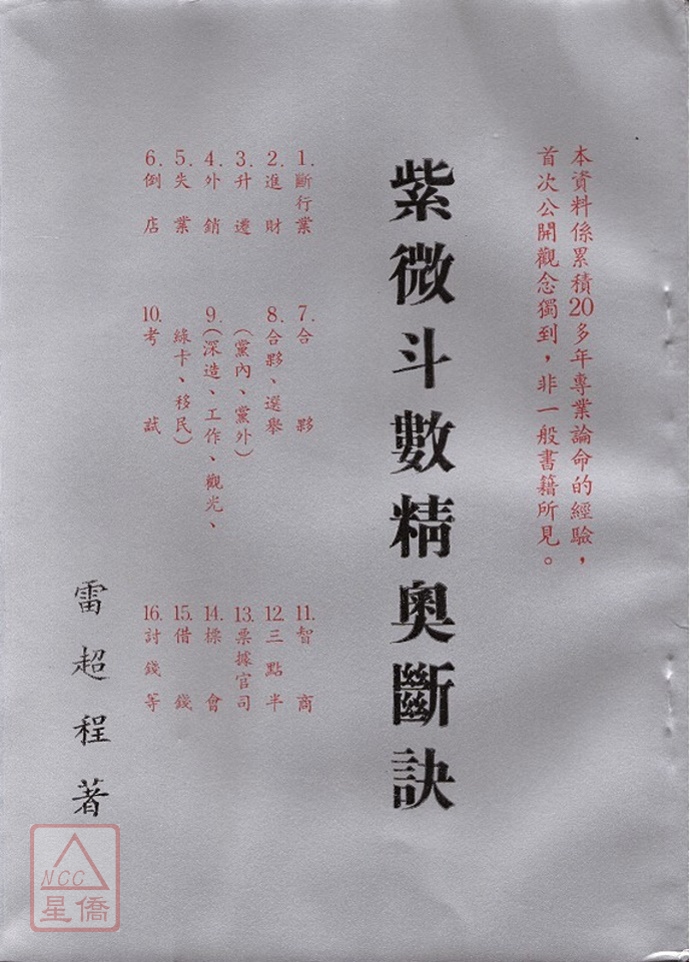 本資料係累積20多年專業論命的經驗，
首次公開觀念獨到，非一般書籍所見。
紫微斗數精奧斷訣
1.斷行業
2.進財
3.升遷
4.外銷
5.失業
6.倒店
7.合夥
8.合夥、選舉
（黨內、黨外）
9.（深造、工作、觀光、
綠卡、移民）
10.考試
11.智商
12.三點半
13.票據官司
14.標會
15.借錢
16.討錢等
雷超程著
NCC
星僑